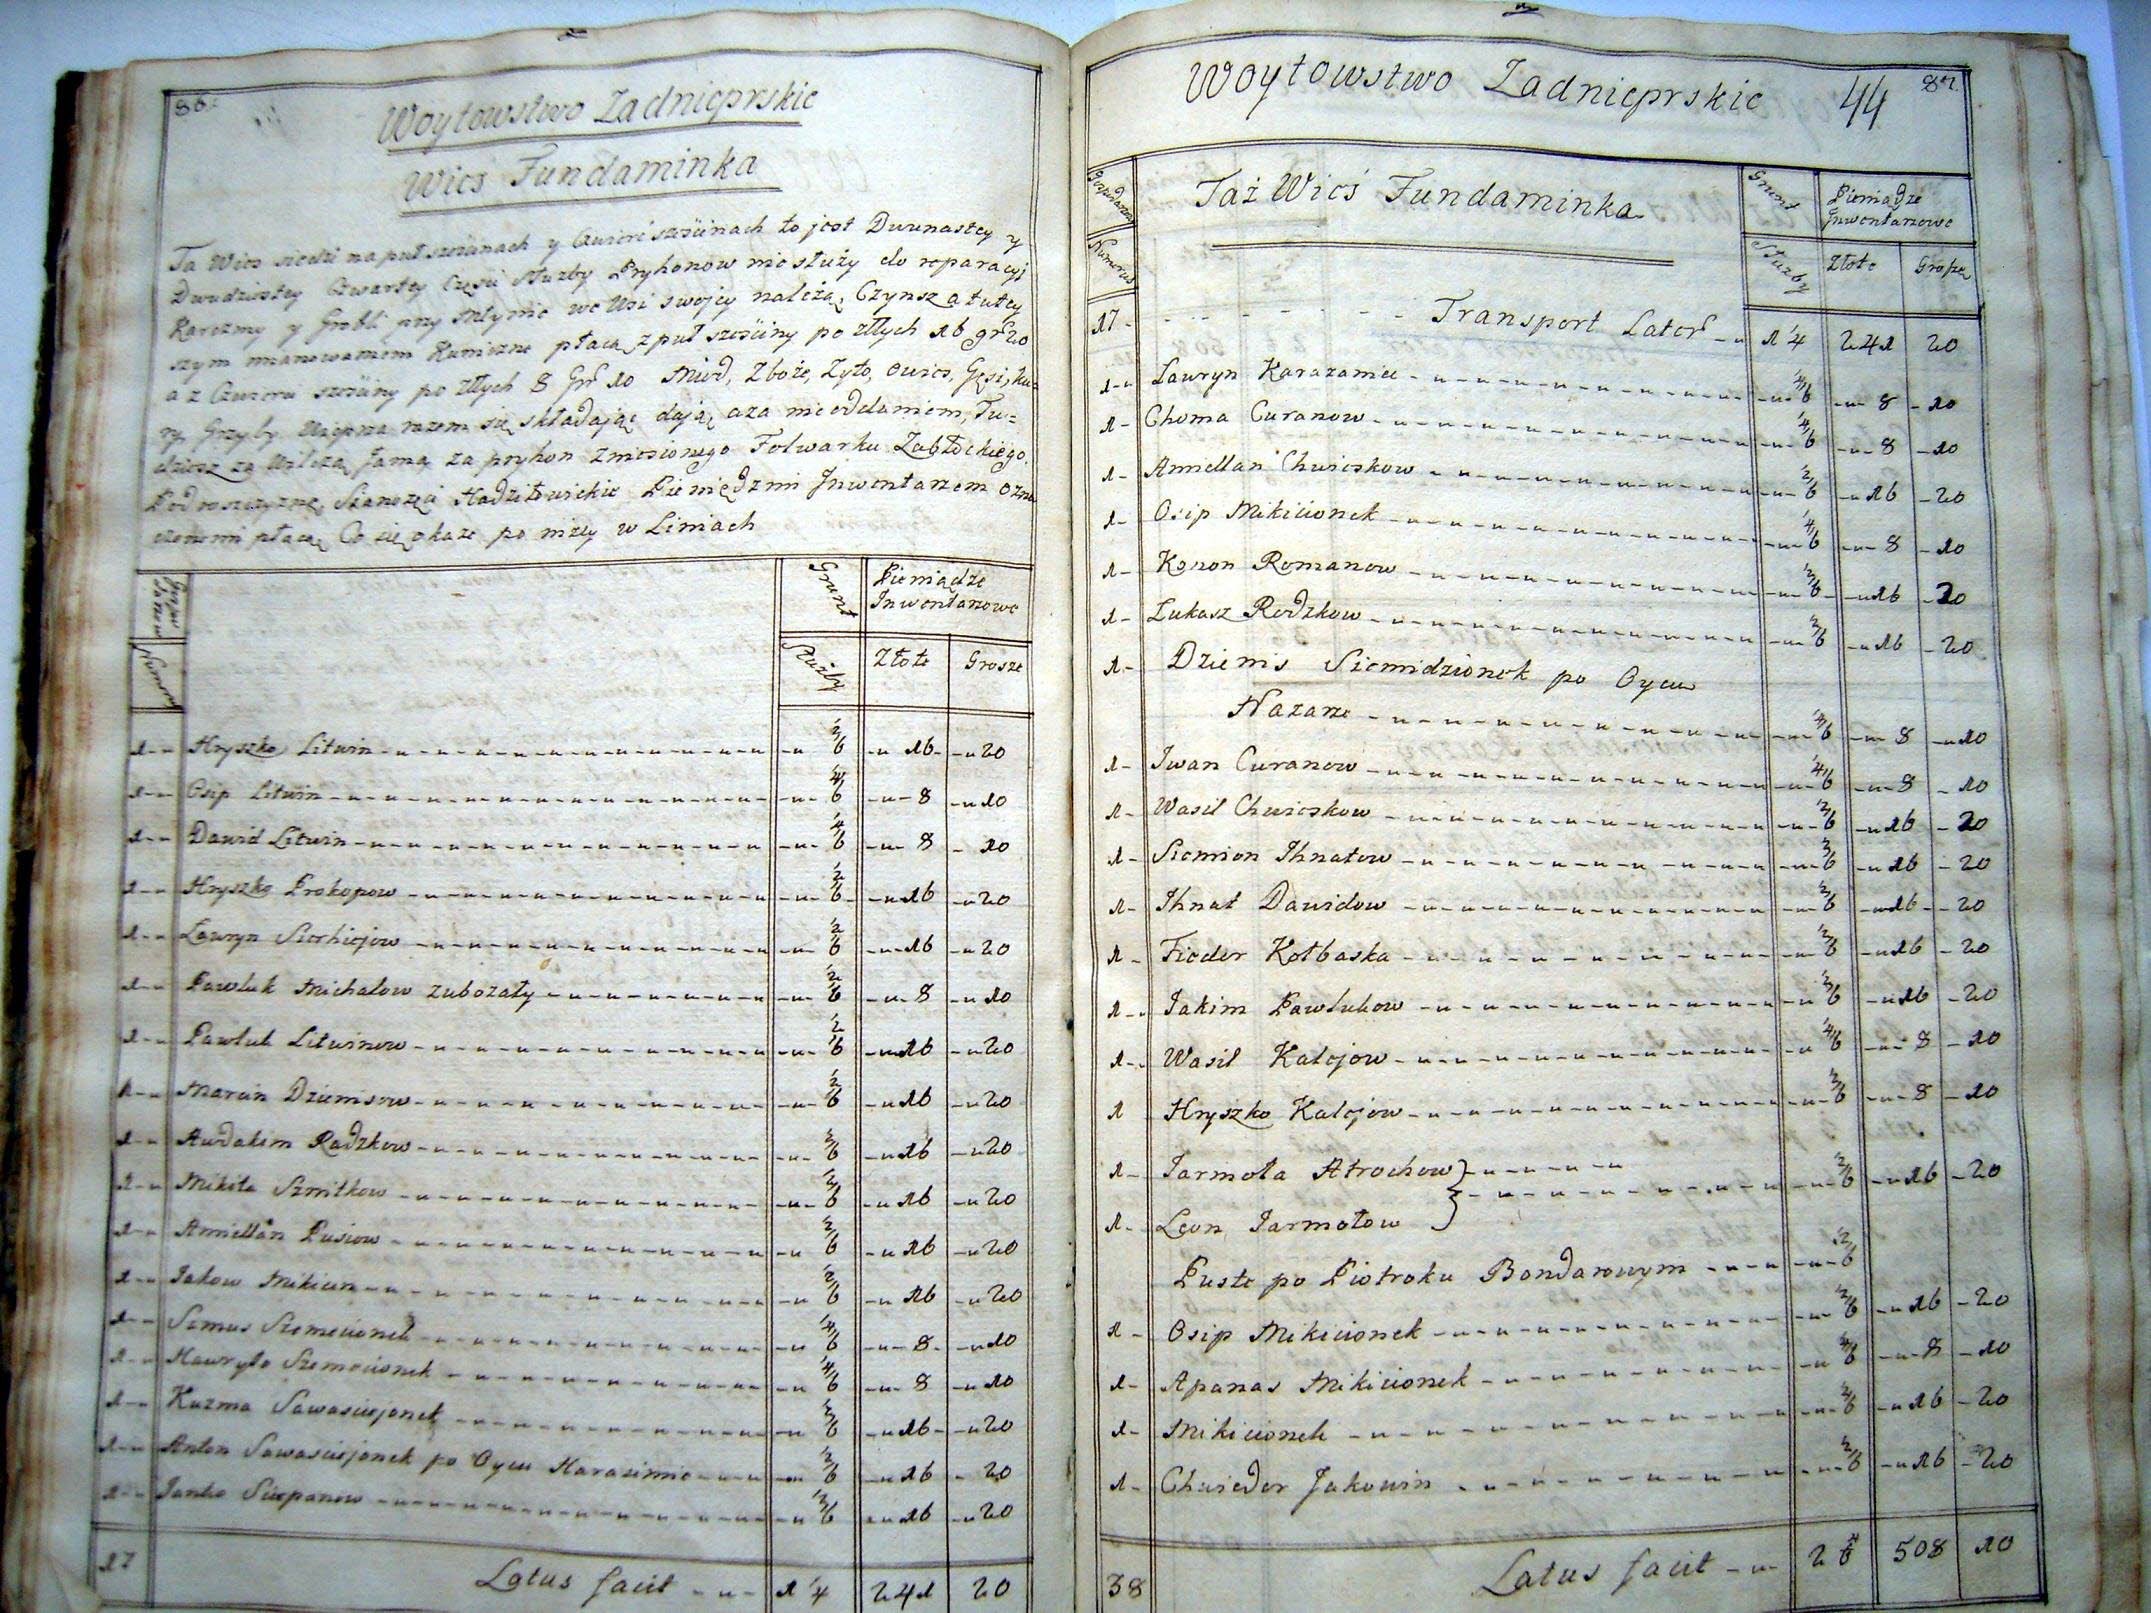 86.
Woytowstwo Zadnieprskie
Wieś Fundaminka
Ta Wies siedzi na puł szośinach y Czwierć szośinach to jest Dwunastey y
Dwudziestey Czwartey Części Służby Pryhonow nie służy do reparacyi
Karczmy y Grobli przy Młynie we Wsi swojey należą, Czynsz a tutey
szym mianowaniem Kuniczne płacą z puł szośiny po złłych 16 gr 20
a z Czwierci szośiny po złłych 8 Gr 10 Miod, Zboże, Zyto, Owies, Gęsi, Ku=
ry, Grzyby Uiepna razem się składając dają, a za nieoddaniem, Tu=
dziesz za Wilczą Jamą za pryhon Zniesionego Folwarku Zabłockiego,
Podroszczyznę, Stancząci Hadziłowickie Pieniędzmi Jnwentarzem ozna
czonemi płacą, Co się okaże po niżey w Liniach
Gospodarzow
Numerus
Grunt
Służby
Pieniądze
Inwentarzowe
Złote
Grosze
1 Hryszko Litwin 1/2/6 16 20
1 Osip Litwin 1/4/6 8 10
1 Dawid Litwin 1/4/6 8 10
1 Hryszko Prokopow 1/2/6 16 20
1 Lawryn Sierhiejow 1/2/6 16 20
1 Pawluk Michałow zubożały 1/2/6 8 10
1 Pawluk Litwinow 1/2/6 16 20
1 Marcin Dziemisow 1/2/6 16 20
1 Audakim Radzkow 1/2/6 16 20
1 Mikita Szmitkow 1/2/6 16 20
1 Amiellan Pusiow 1/2/6 16 20
1 Jakow Mikicin 1/2/6 16 20
1 Samus Szemecionek 1/4/6 8 10
1 Hawryło Szemecionek 1/4/6 8 10
1 Kuzma Sawasciejonek 1/2/6 16 20
1 Anton Sawasciejonek po Oycu Harasimie 1/2/6 16 20
1 Janko Sciepanow 1/2/6 16 20
17 Latus facit 1 1/4 241 20
Woytowstwo Zadnieprskie 44 87.
Gospodarzow
Numerus
Taż Wieś Fundaminka
Grunt
Służby
Pieniądze
Jnwentarzowe
Złote
Grosze
17 Transport Later 1 1/4 241 20
1 Lawryn Karazania 1/4/6 8 10
1 Choma Curanow 1/4/6 8 10
1 Amiellan Chwieskow 1/2/6 16 20
1 Osip Mikicionek 1/4/6 8 10
1 Konon Romanow 1/2/6 16 20
1 Lukasz Rodzkow 1/2/6 16 20
1 Dziemis Siemidzionek po Oycu
Nazarze 1/4/6 8 10
1 Jwan Curanow 1/4/6 8 10
1 Wasil Chwieskow 1/2/6 16 20
1 Siemion Jhnatow 1/2/6 16 20
1 Jhnat Dawidow 1/2/6 16 20
1 Fiedor Kołbaska 1/2/6 16 20
1 Jakim Pawlukow 1/2/6 16 20
1 Wasil Kalejow 1/4/6 8 10
1 Hryszko Kalejow 1/2/6 8 10
1 Jarmoła Atrochow
1/2/6 16 20
1 Leon Jarmołow
Puste po Piotroku Bondarowym 1/2/6
1 Osip Mikicionek 1/2/6 16 20
1 Apanas Mikicionek 1/4/6 8 10
1 Mikicionek 1/2/6 16 20
1 Chwiedor Jakowin 1/2/6 16 20
38 Latus facit 2 508 10